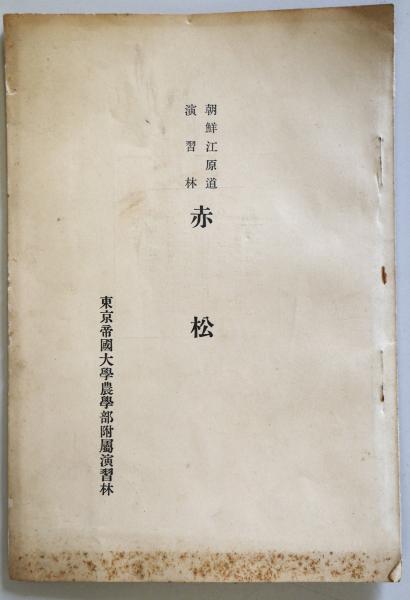 朝鮮江原道
演習林
赤松
東京帝國大學農學部附屬演習林